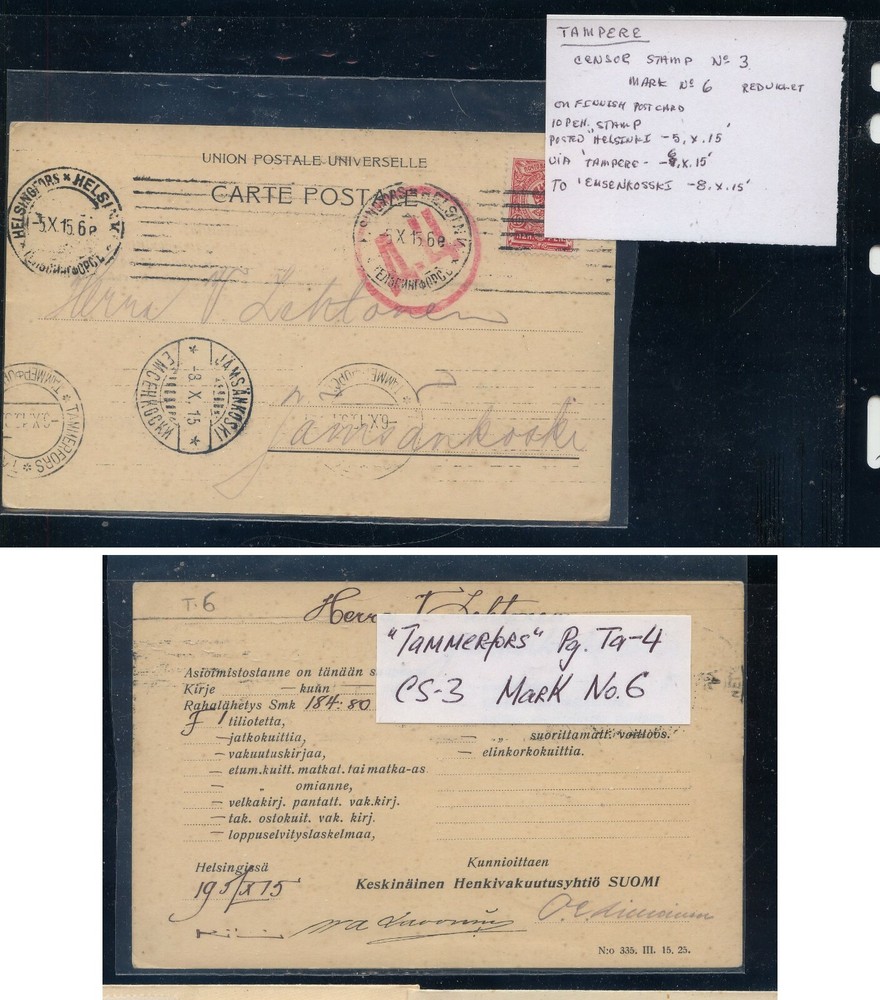 TAMPERE
CENSOR STAMP Nº 3
MARK Nº 6 RED VIOLET
ON FINNISH POSTCARD
10 PEN. STAMP
POSTED "HELSINKI -5.X.15'
VIA 'TAMPERE - 6.X.15'
TO 'EMSENKOSSKI -8.X.15'
UNION POSTALE UNIVERSELLE
CARTE POSTALE
HELSINGFORS * HELSINKI
-5.X.15.6e
ГЕЛЬСИНГФОРСЪ
HELSINGFORS HELSINKI
5.X.15.6e
ГЕЛЬСИНГФОРСЪ
Д.Ц
Herra V. Lehtonen
JÄMSÄNKOSKI
-8.X.15
ЕМСЕНКОСКИ
TAMMERFORS
TAMMERFORS
6.X.15
Jämsänkoski
T.6
Herra V. Lehtonen
"TAMMERFORS" Pg. Ta-4
CS-3 MARK No. 6
Asioimistostanne on tänään
Kirje — kuun
Rahalähetys Smk 184:80
1 tiliotetta,
— jatkokuittia,
— vakuutuskirjaa,
— etum. kuitt. matkat. tai matka-as
— „ omianne,
— velkakirj. pantatt. vak. kirj.
— tak. ostokuit. vak. kirj.
— loppuselvityslaskelmaa,
— „ suorittamatt. voittoos.
— elinkorkokuittia.
Helsingissä
19 5/X 15
Kunnioittaen
Keskinäinen Henkivakuutusyhtiö SUOMI
N:o 335. III. 15. 25.